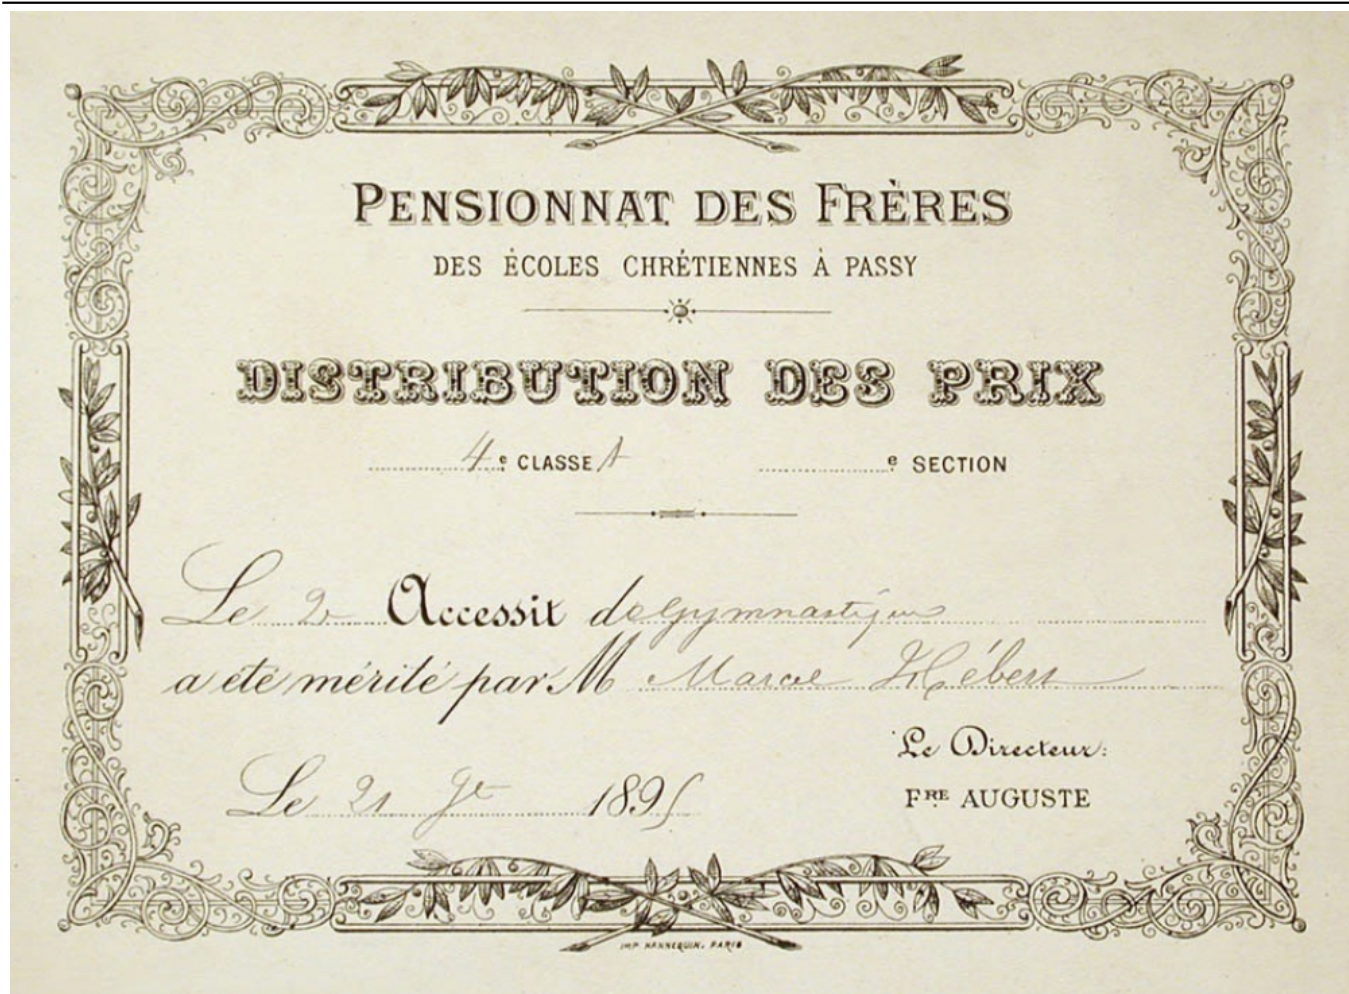 PENSIONNAT DES FRÈRES
DES ÉCOLES CHRÉTIENNES À PASSY
DISTRIBUTION DES PRIX
4e CLASSE A e SECTION
Le 2e Accessit de gymnastique
a été mérité par M Marcel Hébert
Le Directeur:
Le 21 1895
FRE AUGUSTE
IMP. HANNEQUIN, PARIS